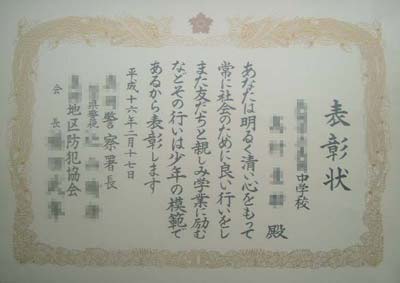 表彰状
中学校
殿
あなたは明るく清い心をもって
常に社会のために良い行いをし
また友だちと親しみ学業に励む
などその行いは少年の模範で
あるから表彰します
平成十六年二月十七日
警察署長
県警視
地区防犯協会
会長